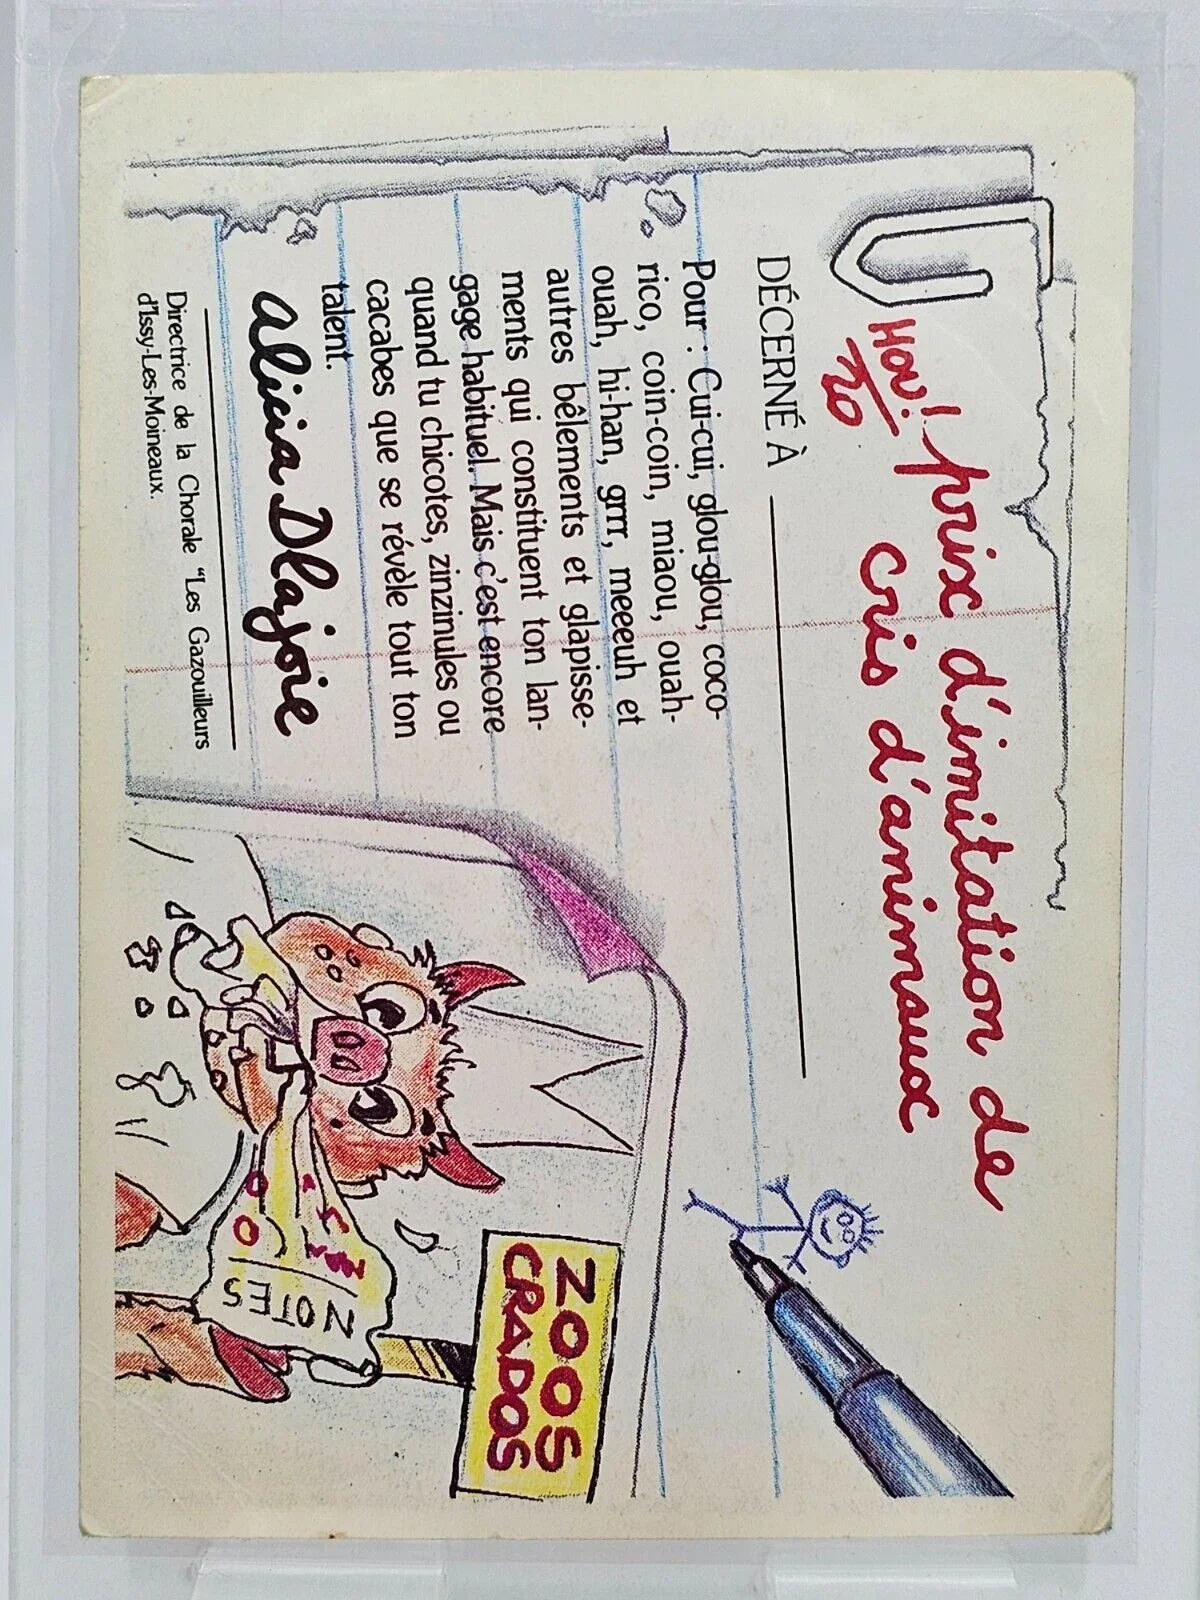 prix d'imitation de
cris d'animaux
Hou!
20
DÉCERNÉ À
Pour : Cui-cui, glou-glou, coco-
rico, coin-coin, miaou, ouah-
ouah, hi-han, grrr, meeeuh et
autres bêlements et glapisse-
ments qui constituent ton lan-
gage habituel. Mais c'est encore
quand tu chicotes, zinzinules ou
cacabes que se révèle tout ton
talent.
alicia Dlajoie
Directrice de la Chorale "Les Gazouilleurs
d'Issy-Les-Moineaux.
ZOOS
CRADOS
NOTES